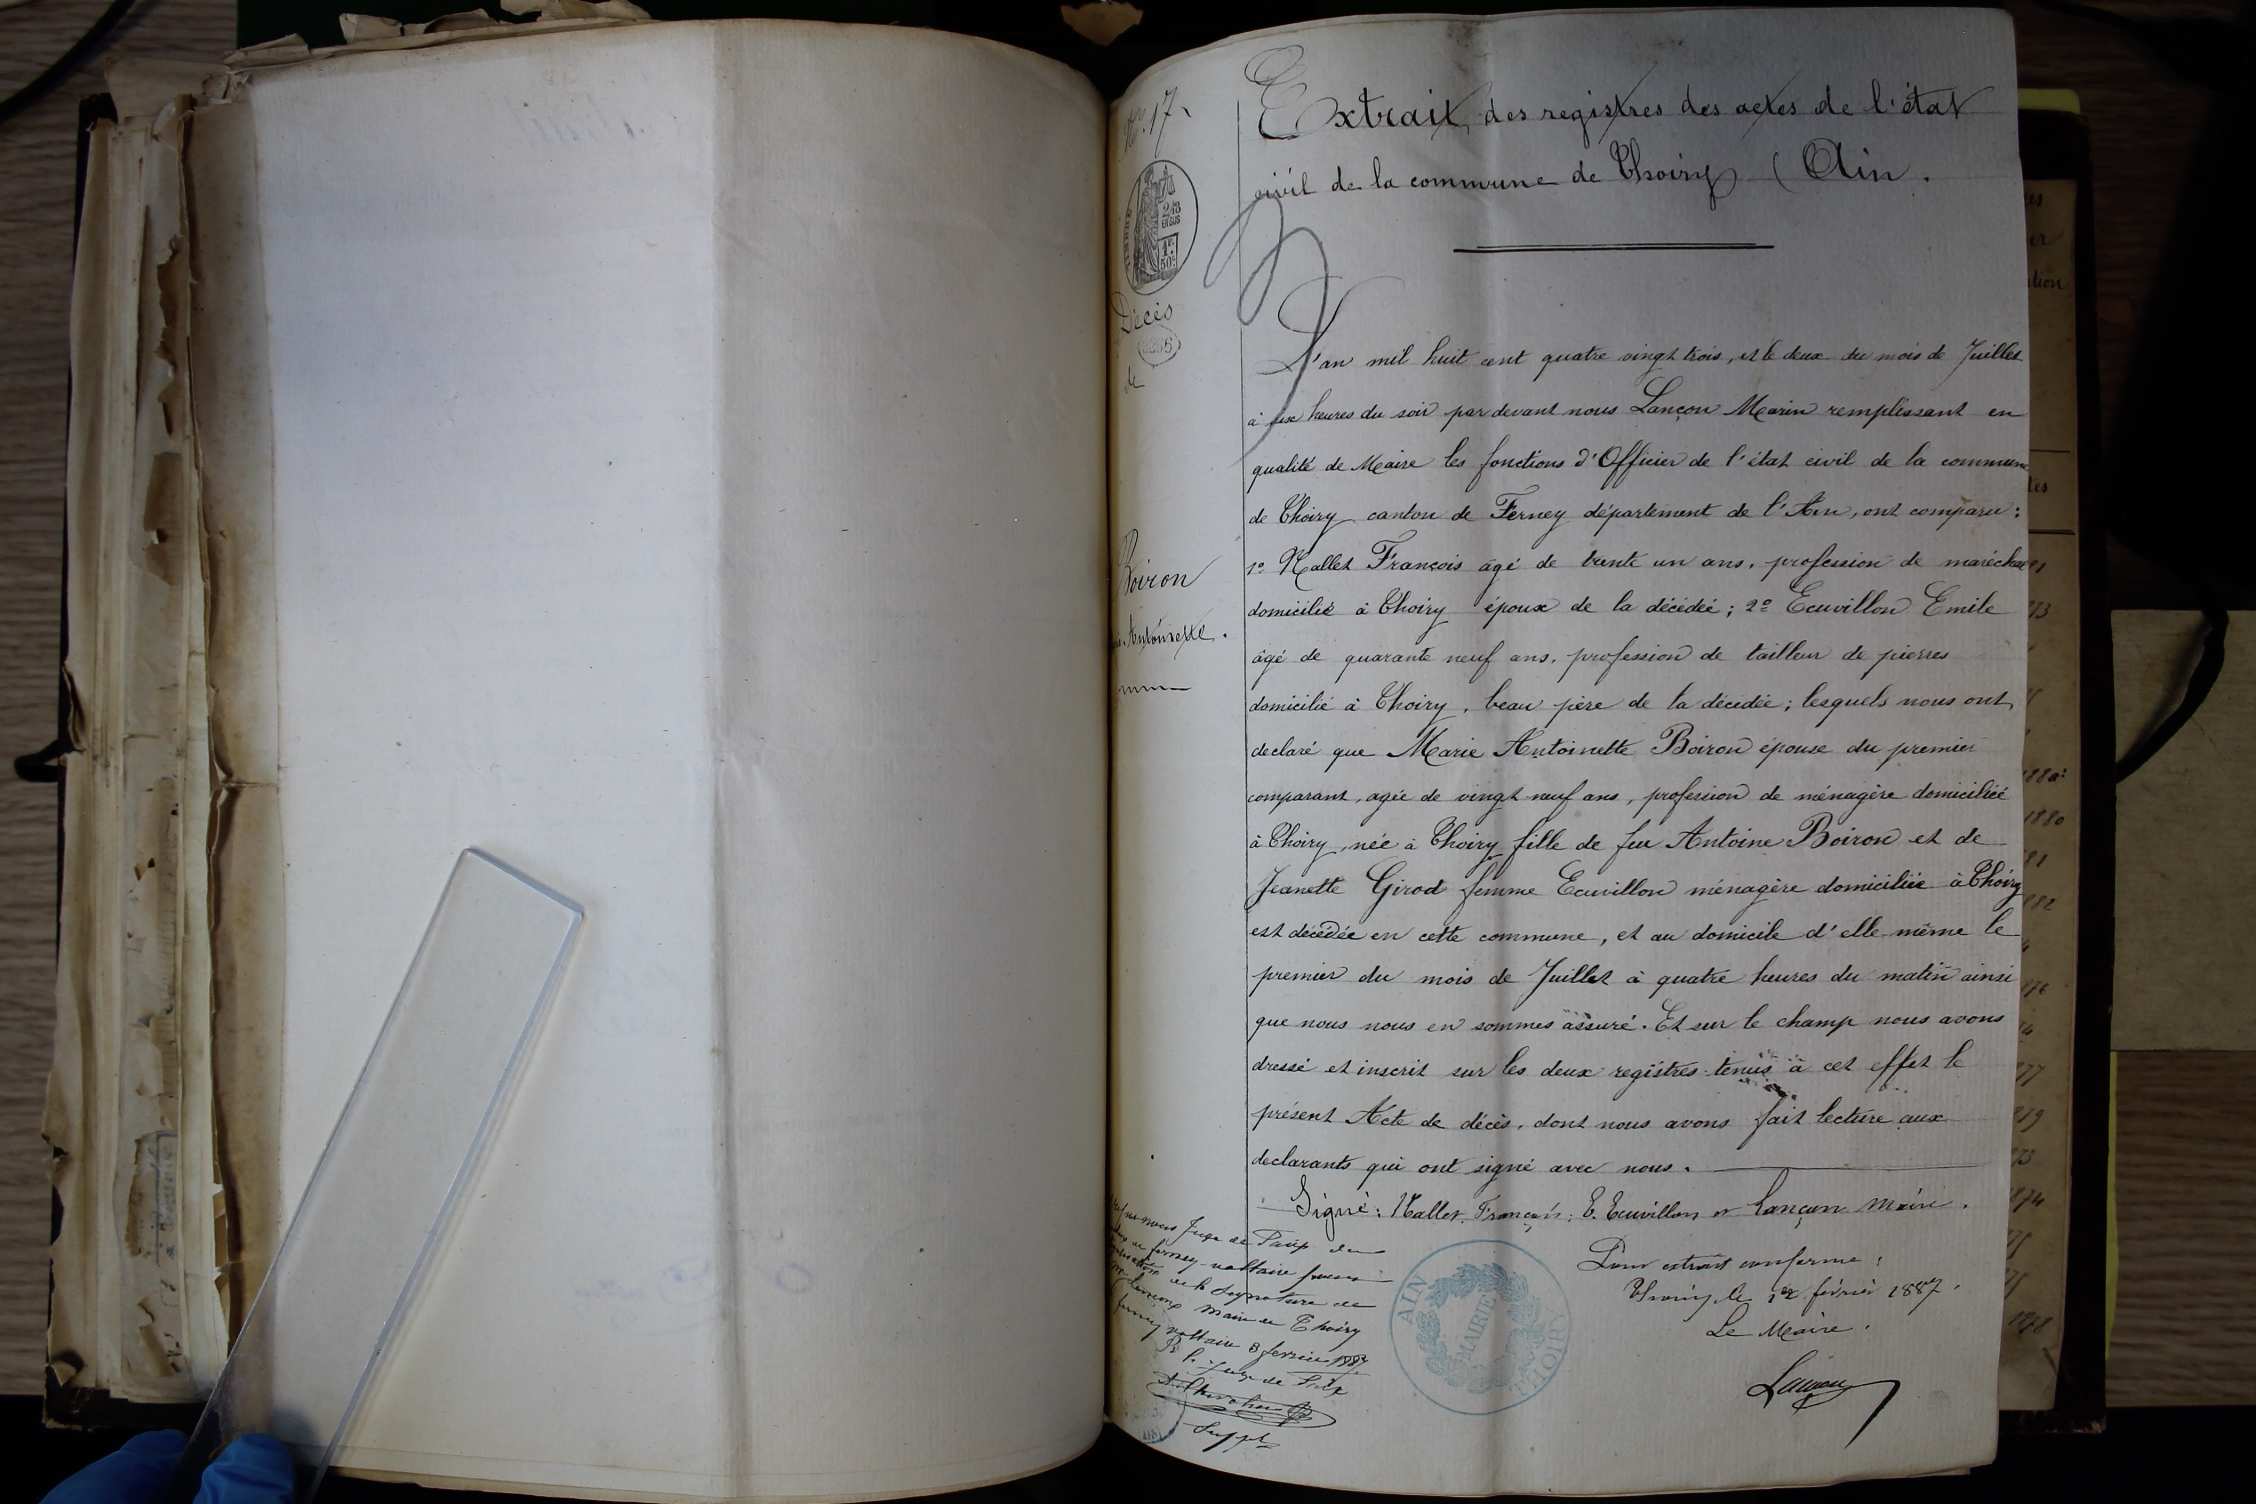 No. 17.
Extrait des registres des actes de l'état
civil de la commune de Thoiry (Ain.
TIMBRE
2/10
EN SUS
1F.
50c
Décès
de
Boiron
Antoinette.
L'an mil huit cent quatre vingt trois, et le deux du mois de Juillet
à six heures du soir par devant nous Lançon Marin remplissant en
qualité de Maire les fonctions d'Officier de l'état civil de la commune
de Thoiry canton de Ferney département de l'Ain, ont comparu:
1º Mallet François âgé de trente un ans, profession de maréchal
domicilié à Thoiry époux de la décédée; 2º Ecuvillon Emile
âgé de quarante neuf ans, profession de tailleur de pierres
domicilié à Thoiry, beau père de la décédée; lesquels nous ont
declaré que Marie Antoinette Boiron épouse du premier
comparant, agée de vingt neuf ans, profession de ménagère domiciliée
à Thoiry, née à Thoiry fille de feu Antoine Boiron et de
Jeanette Girod femme Ecuvillon ménagère domiciliée à Thoiry
est décédée en cette commune, et au domicile d'elle-même le
premier du mois de Juillet à quatre heures du matin ainsi
que nous nous en sommes assuré. Et sur le champ nous avons
dressé et inscrit sur les deux registres tenus à cet effet le
présent Acte de décès, dont nous avons fait lecture aux
declarants qui ont signé avec nous.
Signé: Mallet François; E. Ecuvillon et Lançon Maire.
Pour extrait conforme:
Thoiry le 1er février 1887.
Le Maire.
Lançon
AIN
MAIRIE
THOIRY
nous Juge de Paix du
de Ferney-voltaire pour
de la Signature de
Lançon Maire de Thoiry
ferney voltaire 3 fevrier 1887
Pr le Juge de Paix
Suppt